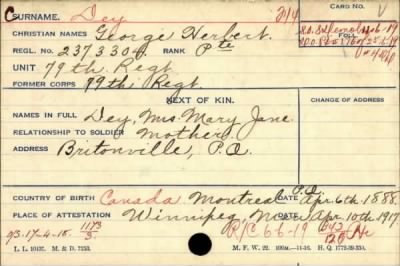 C
SURNAME. Dey
CARD NO.
CHRISTIAN NAMES George Herbert
FOLL.
REGL. NO. 2373304 RANK Pte
UNIT 79th Regt.
FORMER CORPS 79th Regt.
NEXT OF KIN.
CHANGE OF ADDRESS
NAMES IN FULL Dey, Mrs. Mary Jane
RELATIONSHIP TO SOLDIER Mother
ADDRESS Britonville, P.Q.
COUNTRY OF BIRTH Canada Montreal P.Q. DATE Apr. 6th 1888.
PLACE OF ATTESTATION Winnipeg, Man DATE Apr. 10th 1917
R/C 6-6-19
L. L. 10437. M. & D. 7253.
M. F. W. 22. 100m.—11-16. H. Q. 1772-39-339.